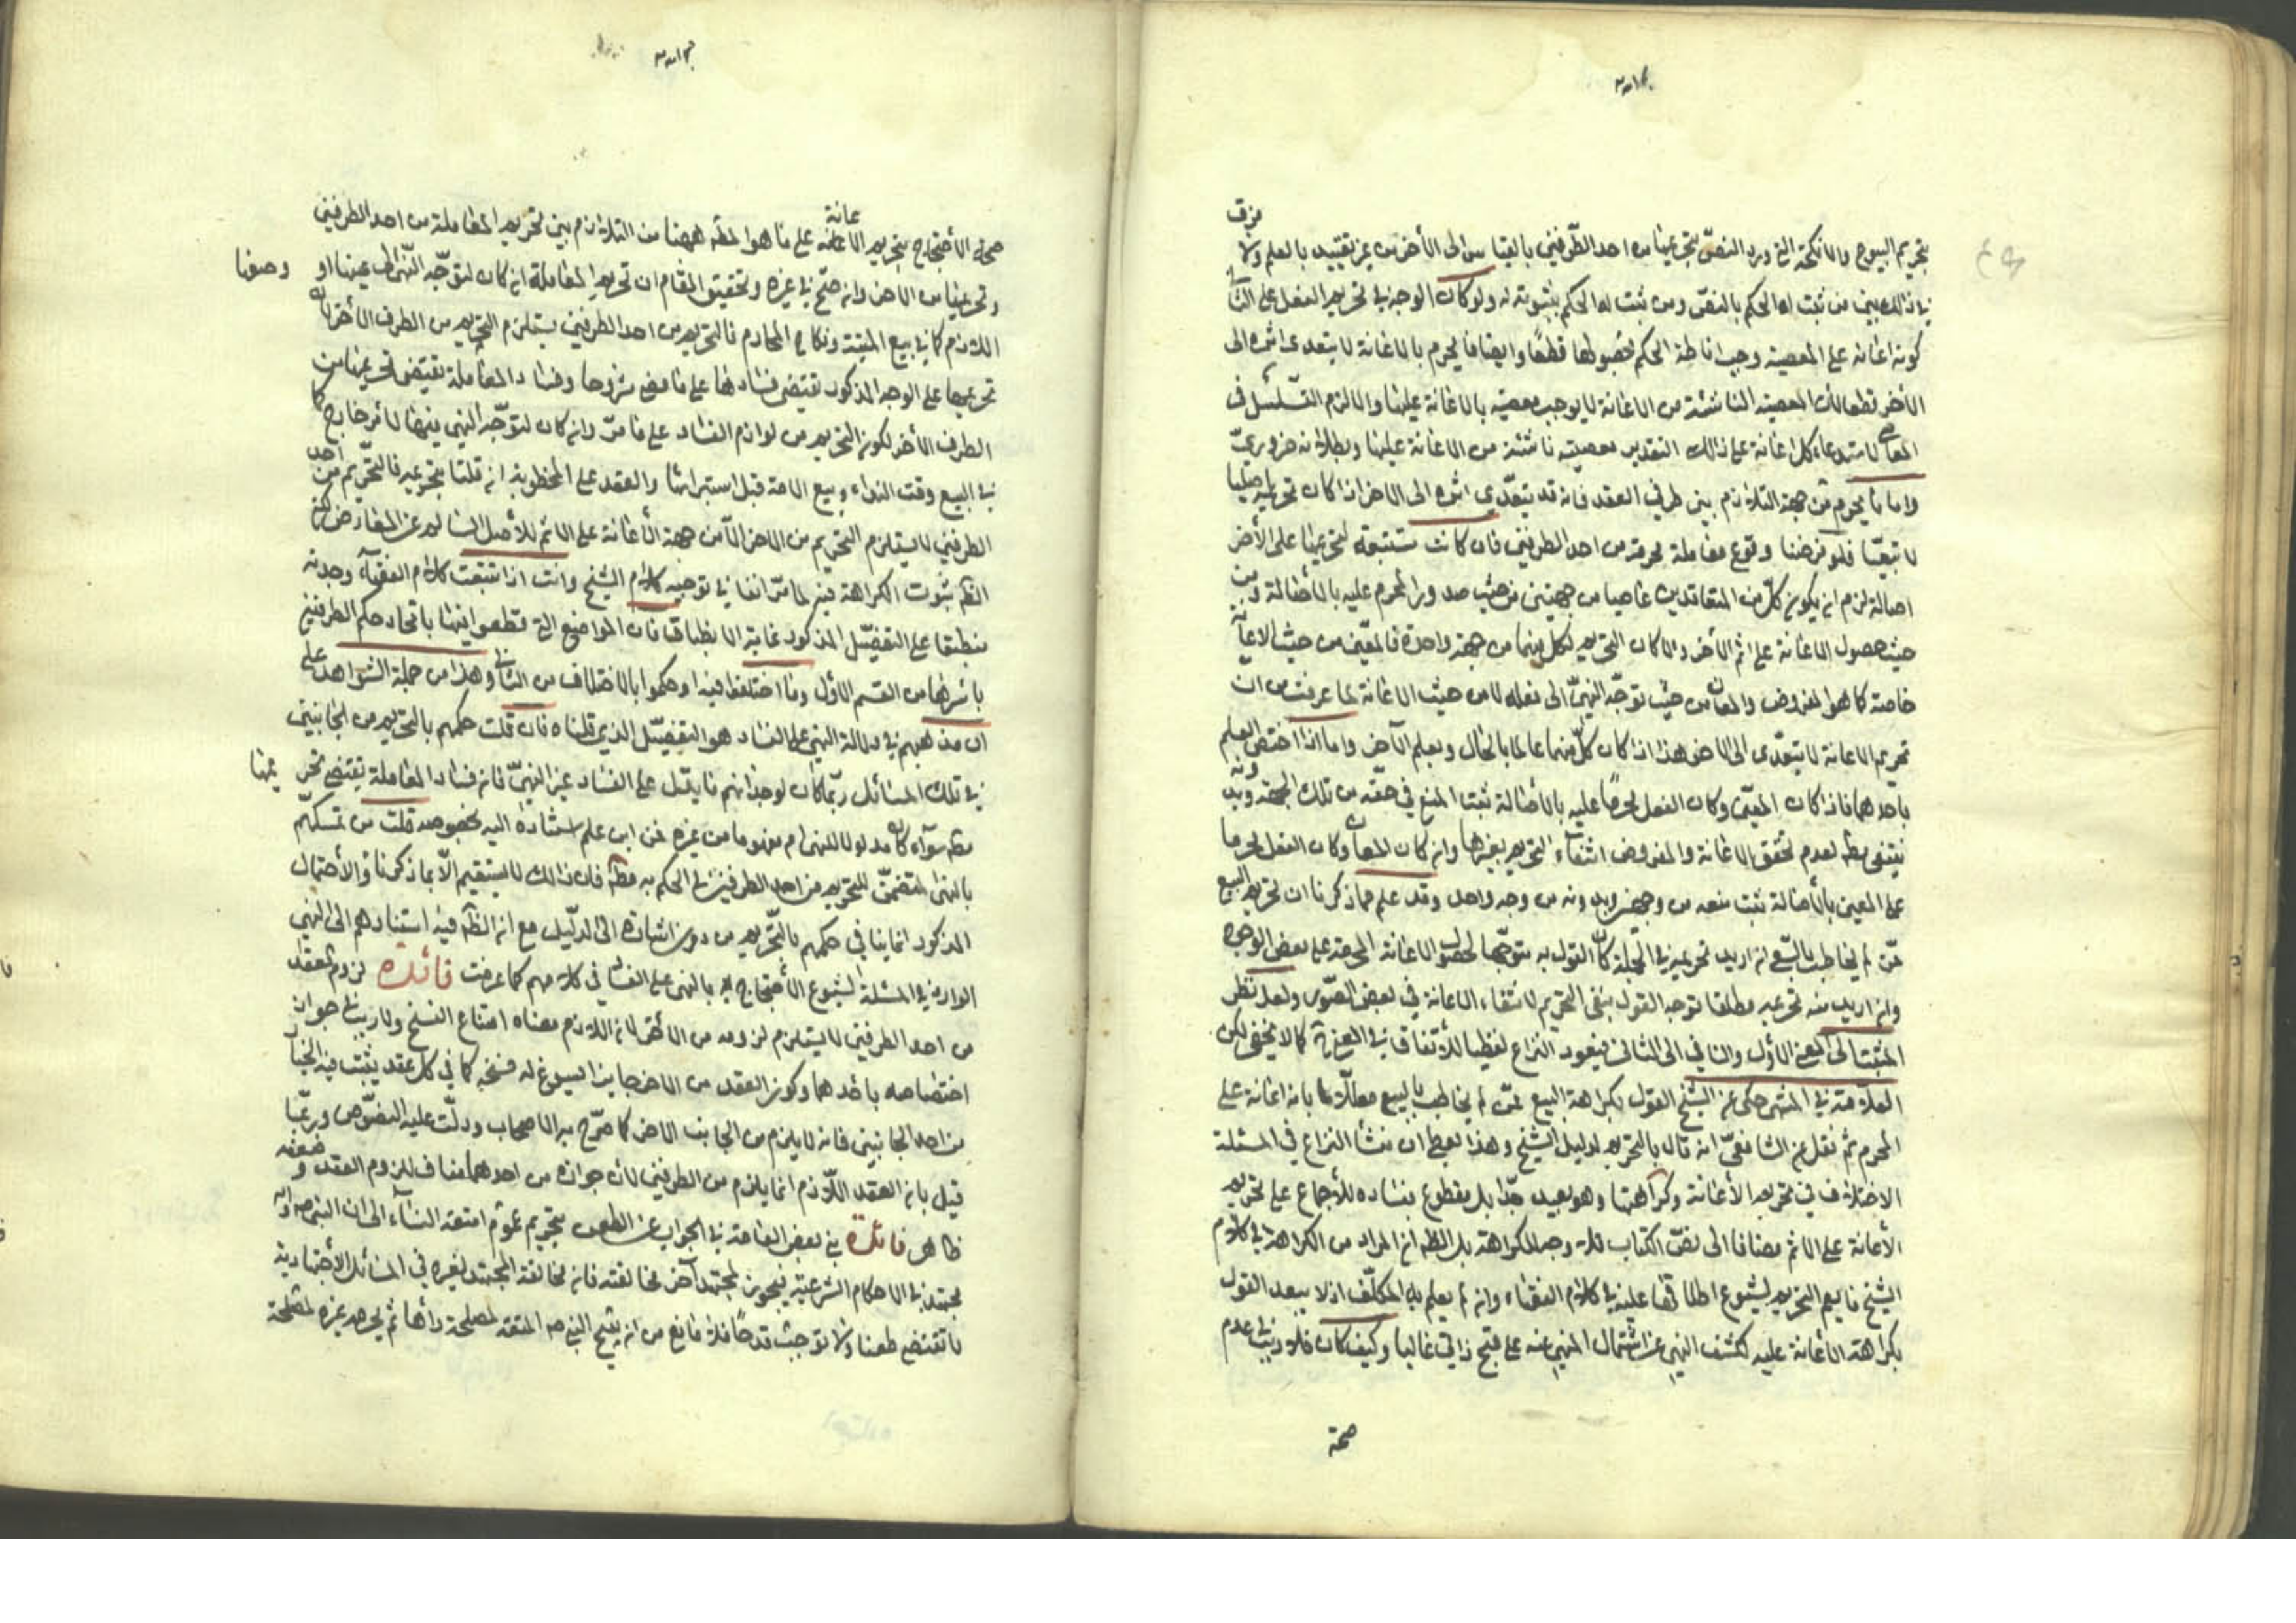 بتحريم البيوع والانكحة التى ورد النصّ بتحريمها من احد الطّرفين بالقياس الى الأخر من غير تقييد بالعلم ولا فرق
فى ذلك بين من ثبت له الحكم بالنصّ ومن ثبت له الحكم بثبوته له ولو كان الوجه فى تحريم الفعل على الثانى
كونه اعانة على المعصية وجب اناطة الحكم بحصولها قطعًا وايضا ما يحرم بالاعانة لا يتعدى اثمه الى
الأخر قطعا لان المعصية الناشئة من الاعانة لا يوجب معصية بالاعانة عليها والا لزم التسلسل فى
المعاصى لاستدعاء كل اعانة على ذلك التقدير معصية ناشئة من الاعانة عليها وبطلانه ضروريّ
واما ما يحرم من جهة التلازم بين طرفى العقد فانه قد يتعدّى اثمه الى الاخر اذا كان تحريمه اصليا
لا تبعيّا فلو فرضنا وقوع معاملة محرمة من احد الطرفين فان كانت مستتبعة لتحريمها على الأخر
اصالة لزم ان يكون كلّ من المتعاقدين عاصيا من جهتين من حيث صدور المحرم عليه بالأصالة ومن
حيث حصول الاعانة على اثم الأخر والا كان التحريم لكل منهما من جهة واحدة فالمعين من حيث الاعانة
خاصة كما هو المفروض والمعان من حيث توجّه النهىّ الى فعله لا من حيث الاعانة لما عرفت من ان
تحريم الاعانة لا يتعدّى الى الاخر هذا اذا كان كلّ منهما عالما بالحال وبعلم الآخر واما اذا اختص العلم
باحدهما فاذا كان المعين وكان الفعل محرمًا عليه بالأصالة ثبت المنع فى حقّه من تلك الجهة وبدونه
ينتفى مطلقا لعدم تحقق الاعانة والمفروض انتفاء التحريم بغيرها وان كان المعان وكان الفعل محرما
على المعين بالأصالة ثبت منعه من وجهين وبدونه من وجه واحد وقد علم مما ذكرنا ان تحريم البيع
عمّن لم يخاطب بالسّعى ان اريد تحريمه فى الجملة كان القول به متوجّها لحصول الاعانة المحرمة على بعض الوجوه
وان اريد منه تحريمه مطلقا توجه القول بنفى التحريم لانتفاء الاعانة فى بعض الصّور ولعل نظر
المثبت الى المعنى الأوّل والنافى الى الثانى فيعود النزاع لفظيا للاتفاق فى المعنى كما لا يخفى لكن
العلّامة فى المنتهى حكى عن الشيخ القول بكراهة البيع لمن لم يخاطب بالبيع معلّلا بانه اعانة على
المحرم ثم نقل عن الشافعىّ انه قال بالتحريم لدليل الشيخ وهذا يعطى ان منشأ النزاع فى المسئلة
الاختلاف فى تحريم الأعانة وكراهتها وهو بعيد جدّا بل مقطوع بفساده للأجماع على تحريم
الأعانة على الاثم مضافا الى نصّ الكتاب فلا وجه للكراهة بل الظ ان المراد من الكراهة فى كلام
الشيخ ما يعم التحريم لشيوع اطلاقها عليه فى كلام الفقهاء وان لم يعلم به المكلّف اذ لا يبعد القول
بكراهة الأعانة عليه لكشف النهى عن اشتمال المنهى عنه على قبح ذاتى غالبا وكيف كان فلا ريب فى عدم
صحة
صحة الأحتجاج بتحريم الاعانة على ما هو المط ههنا من التلازم بين تحريم المعاملة من احد الطرفين
وتحريمها من الاخر وان صحّ فى غيره وتحقيق المقام ان تحريم المعاملة ان كان لتوجّه النّهى الى عينها او وصفها
اللازم كما فى بيع الميتة ونكاح المحارم فالتحريم من احد الطرفين يستلزم التحريم من الطرف الأخر لان
تحريمها على الوجه المذكور يقتضى فسادها على ما مضى مشروحا وفساد المعاملة يقتضى تحريمها من
الطرف الأخر لكون التحريم من لوازم الفساد على ما مرّ وان كان لتوجّه النهى فيها لامر خارج كما
فى البيع وقت النداء وبيع الامة قبل استبرائها والعقد على المخطوبة ان قلنا بتحريمه فالتحريم من احد
الطرفين لا يستلزم التحريم من الاخر الّا من جهة الأعانة على الاثم للأصل السالم عن المعارض لكن
الظ ثبوت الكراهة فيه لما مرّ انفا فى توجيه كلام الشيخ وانت اذا تتبعت كلام الفقهاء وجدته
منطبقا على التفصّيل المذكور غاية الانطباق فان المواضع التى قطعوا فيها باتحاد حكم الطرفين
باسرها من القسم الاوّل وما اختلفوا فيه او حكموا بالاختلاف من الثانى وهذا من جملة الشواهد على
ان مذهبهم فى دلالة النهى على الفساد هو التفصّيل الذى قلناه فان قلت حكمهم بالتحريم من الجانبين
فى تلك المسائل ربّما كان لوجدانهم ما يدّل على الفساد غير النهىّ فان فساد المعاملة يقتضى تحريمها
مط سوآء كان مدلولا للنهى ام مفهوما من غيره فمن اين علم استناده اليه بخصوصه قلت من تمسكّهم
بالنهى المتضمّن للتحريم من احد الطرفين فى الحكم به مط فان ذلك لا يستقيم الّا بما ذكرناه والأحتمال
المذكور انما ينافى حكمهم بالتّحريم من دون اشارة الى الدّليل مع ان الظ فيه استنادهم الى النهى
الوارد فى المسئلة لشيوع الأحتجاج بالنهى على الفساد فى كلامهم كما عرفت فائدة لزوم العقد
من احد الطرفين لا يستلزم لزومه من الأخر لان اللازم معناه امتناع الفسخ ولا ريب فى جواز
اختصاصه باحدهما وكون العقد من الاخر جايزا يسوغ له فسخه كما فى كل عقد يثبت فيه الخيار
من احد الجانبين فانه لا يلزم من الجانب الاخر كما صرّح به الاصحاب ودلّت عليه النصّوص وربّما
قيل بان العقد اللّازم انما يلزم من الطرفين لان جوازه من احدهما مناف للزوم العقد وضعفه
ظاهر فائدة فى بعض العامة فى الجواب عن الطعن بتحريم عمر متعة النسآء الى ان النبى ص واله
مجتهد فى الاحكام الشرعيّة فيجوز لمجتهد آخر مخالفته فان مخالفة المجتهد لغيره فى المسائل الأجتهادية
لا تقتضى طعنا ولا توجب قدحًا فلا مانع من ان يبيح النبى ص المتعة لمصلحة رأها ثم يحرمه غيره لمصلحة